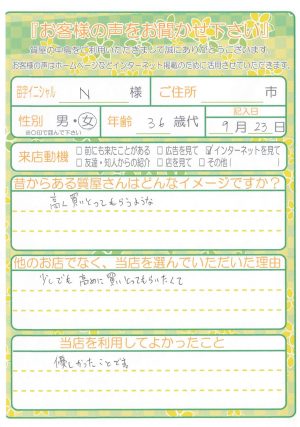 『お客様の声をお聞かせ下さい』
質屋の中島をご利用いただきまして誠にありがとうございます。
お客様の声はホームページなどインターネット掲載のために活用させていただきます。
苗字イニシャル N 様 ご住所 市
性別 男・女 年齢 36 歳代 記入日
※○印で囲んで下さい 9月23日
来店動機 □前にも来たことがある □広告を見て ☑インターネットを見て
□友達・知人からの紹介 □店を見て □その他( )
昔からある質屋さんはどんなイメージですか?
高く買いとってもらうような
他のお店でなく、当店を選んでいただいた理由
少しでも高めに買いとってもらいたくて
当店を利用してよかったこと
優しかったことです